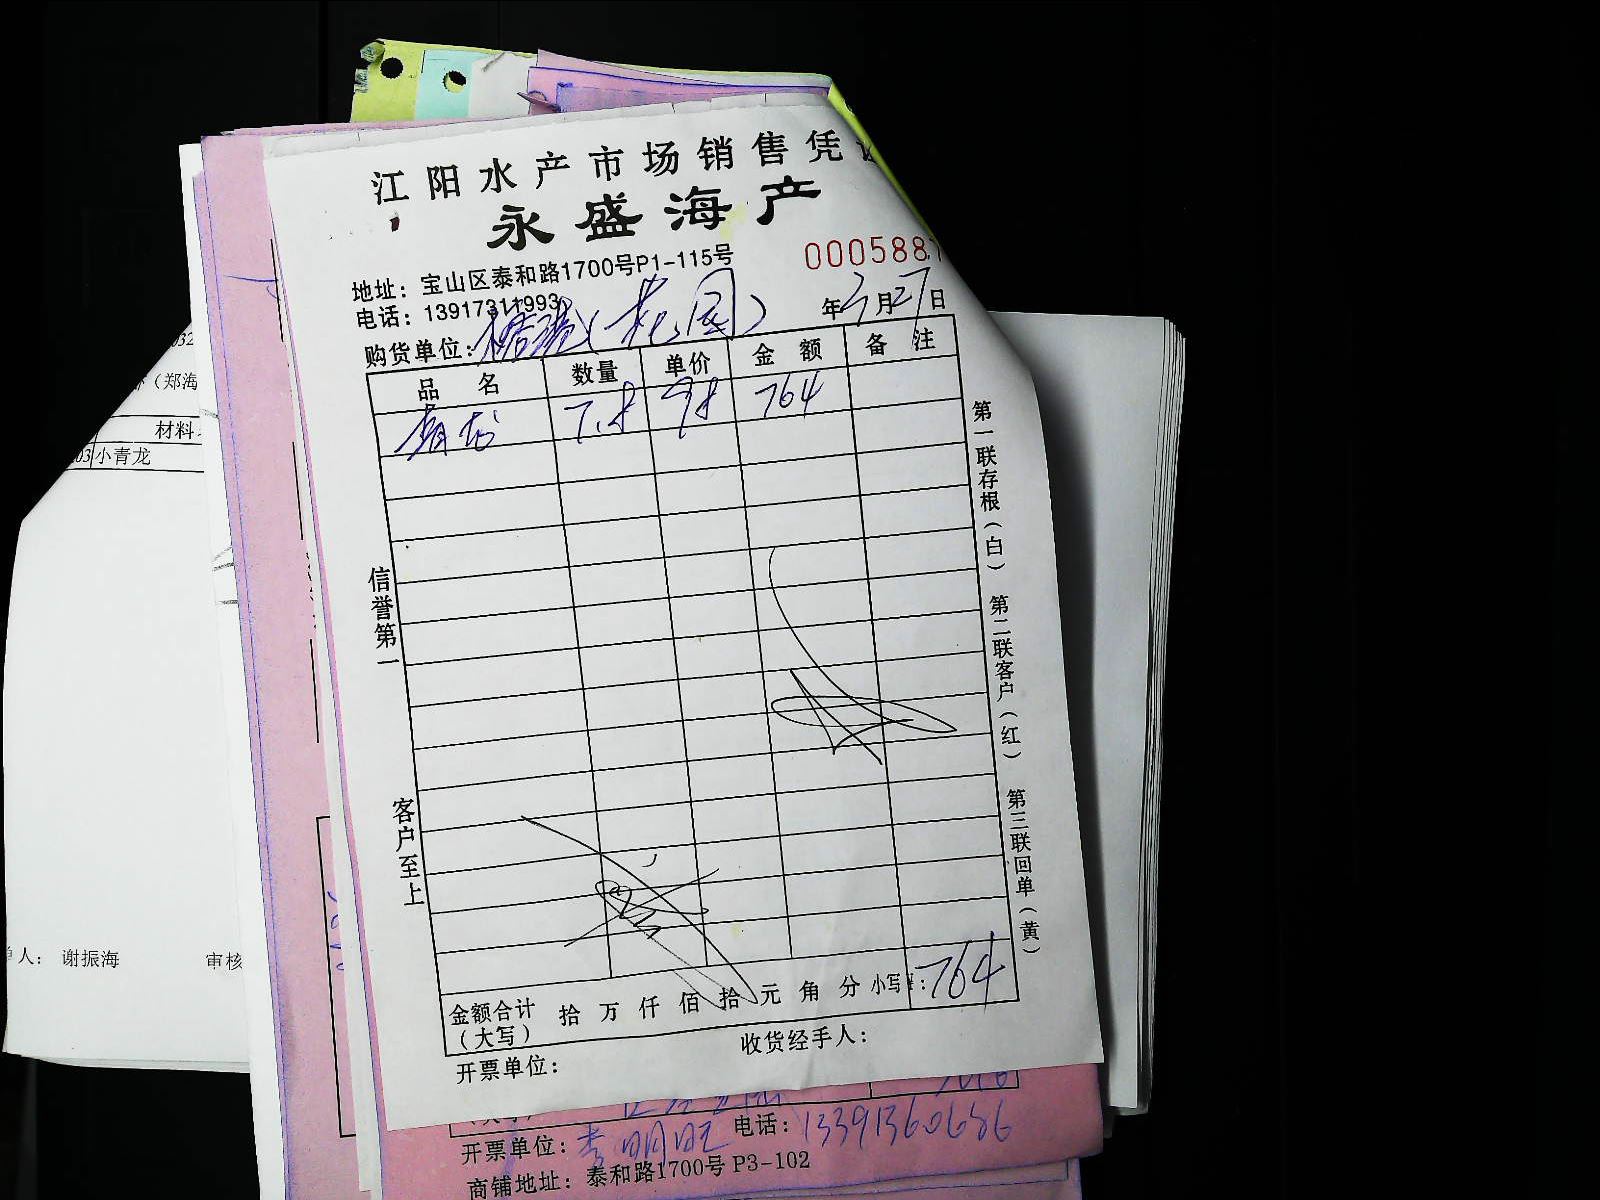 江阳水产市场销售凭
永盛海产
地址：宝山区泰和路1700号P1-115号
0005887
电话：13917311993
年3月27日
购货单位：(花园)
品 名 数量 单价 金 额 备 注
青龙 7.8 98 764
信誉第一
客户至上
第一联存根(白) 第二联客户(红) 第三联回单(黄)
金额合计 拾 万 仟 佰 拾 元 角 分 小写¥：764
(大写)
开票单位：
收货经手人：
开票单位：李明旺 电话：13391360686
商铺地址：泰和路1700号 P3-102
032
(郑海
材料
03 小青龙
单人： 谢振海 审核